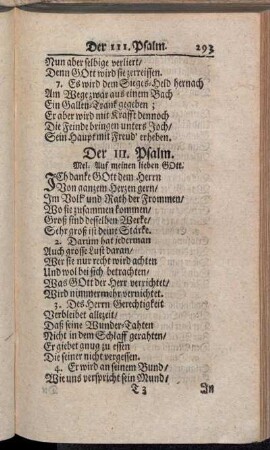 Der III. Psalm. 293
Nun aber selbige verliert/
Denn GOtt wird sie zerreissen.
7. Es wird dem Sieges-Held hernach
Am Wege zwar aus einem Bach
Ein Gallen-Trank gegeben;
Er aber wird mit Krafft dennoch
Die Feinde bringen unters Joch/
Sein Haupt mit Freud' erheben.
Der III. Psalm.
Mel. Auf meinen lieben GOtt.
Ich danke GOtt dem Herrn
Von ganzem Herzen gern/
Im Volk und Rath der Frommen/
Wo sie zusammen kommen/
Groß sind desselben Werke/
Sehr groß ist deine Stärke.
2. Darüm hat iederman
Auch grosse Lust daran/
Wer sie nur recht wird achten
Und wol bei sich betrachten/
Was GOtt der Herr verrichtet/
Wird nimmermehr vernichtet.
3. Des Herrn Gerechtigkeit
Verbleibet allezeit/
Daß seine Wunder-Tahten
Nicht in dem Schlaff gerahten/
Er giebet gnug zu essen
Die seiner nicht vergessen.
4. Er wird an seinem Bund/
Wie uns verspricht sein Mund/
T 3 In